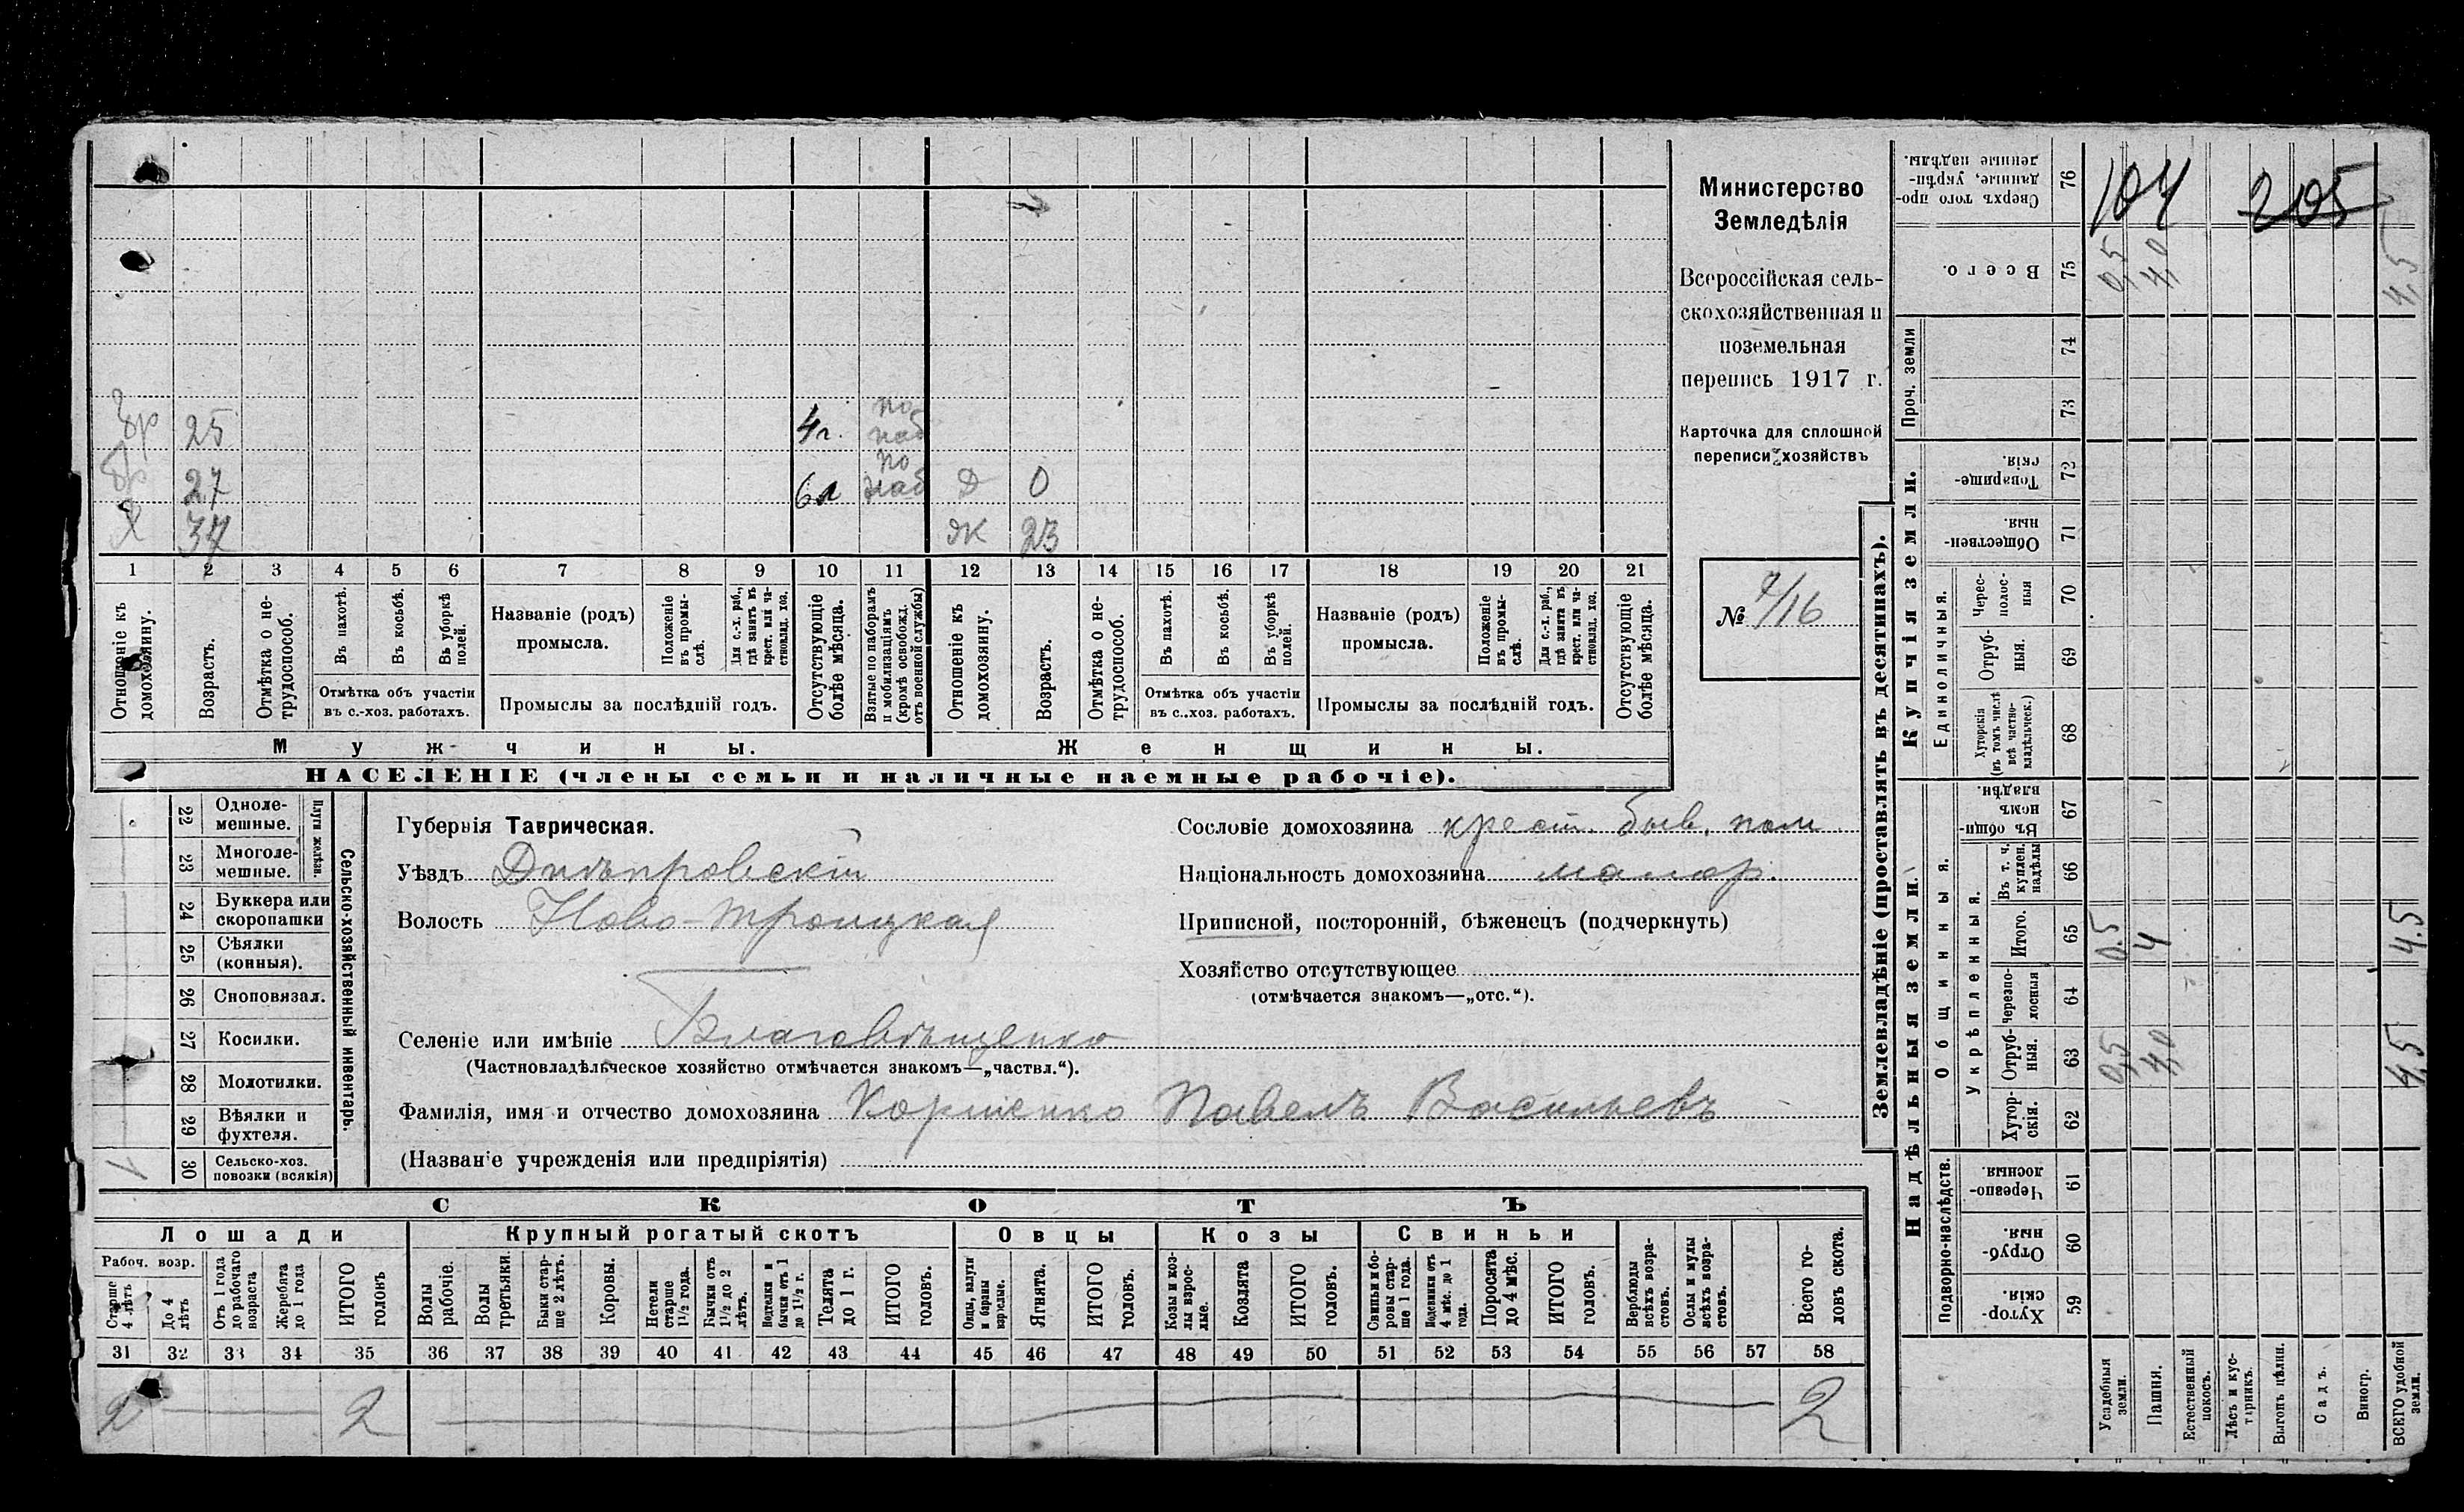 Министерство
Земледѣлія
Всероссійская сель-
скохозяйственная и
поземельная
перепись 1917 г.
Карточка для сплошной
переписи хозяйствъ
№ 7/16
бр 25 4 г. по наб
бр 27 6 л по наб Д 0
Х 37 Ж 23
1 2 3 4 5 6 7 8 9 10 11 12 13 14 15 16 17 18 19 20 21
Отношеніе къ домохозяину.
Возрастъ.
Отмѣтка о не-трудоспособ.
Въ пахотѣ.
Въ косьбѣ.
Въ уборкѣ полей.
Отмѣтка объ участіи
въ с.-хоз. работахъ.
Названіе (родъ)
промысла.
Положеніе въ промы-слѣ.
Для с.-х. раб., гдѣ занятъ въ крест. или ча-стновлад. хоз.
Промыслы за послѣдній годъ.
Отсутствующіе болѣе мѣсяца.
Взятые по наборамъ и мобилизаціямъ (кромѣ освобожд. отъ военной службы)
Отношеніе къ домохозяину.
Возрастъ.
Отмѣтка о не-трудоспособ.
Въ пахотѣ.
Въ косьбѣ.
Въ уборкѣ полей.
Отмѣтка объ участіи
въ с..хоз. работахъ.
Названіе (родъ)
промысла.
Положеніе въ промы-слѣ.
Для с.-х. раб., гдѣ занятъ въ крест. или ча-стновлад. хоз.
Промыслы за послѣдній годъ.
Отсутствующіе болѣе мѣсяца.
Мужчины. Женщины.
НАСЕЛЕНІЕ (члены семьи и наличные наемные рабочіе).
22 Одноле-мешные.
23 Многоле-мешные.
Плуги желѣзн.
24 Буккера или скоропашки
25 Сѣялки (конныя).
26 Сноповязал.
27 Косилки.
28 Молотилки.
29 Вѣялки и фухтеля.
1 30 Сельско-хоз. повозки (всякія)
Сельско-хозяйственный инвентарь.
Губернія Таврическая.
Уѣздъ Днѣпровскій
Волость Ново-Троицкая
Селеніе или имѣніе Благовѣщенко
(Частновладѣльческое хозяйство отмѣчается знакомъ—„частвл.“).
Фамилія, имя и отчество домохозяина Коршенко Павелъ Васильевъ
(Названіе учрежденія или предпріятія)
Сословіе домохозяина крест. быв. пом.
Національность домохозяина малор.
Приписной, посторонній, бѣженецъ (подчеркнуть)
Хозяйство отсутствующее
(отмѣчается знакомъ—„отс.“).
СКОТЪ
Лошади Крупный рогатый скотъ Овцы Козы Свиньи
Рабоч. возр.
Старше 4 лѣтъ
До 4 лѣтъ
Отъ 1 года до рабочаго возраста
Жеребята до 1 года
ИТОГО головъ
Волы рабочіе.
Волы третьяки.
Быки стар-ше 2 лѣтъ.
Коровы.
Нетели старше 1½ года.
Бычки отъ 1½ до 2 лѣтъ.
Нетелки и бычки отъ 1 до 1½ г.
Телята до 1 г.
ИТОГО головъ.
Овцы, валухи и бараны взрослые.
Ягнята.
ИТОГО головъ.
Козы и коз-лы взрос-лые.
Козлята
ИТОГО головъ.
Свиньи и бо-ровы стар-ше 1 года.
Подсвинки отъ 4 мѣс. до 1 года.
Поросята до 4 мѣс.
ИТОГО головъ.
Верблюды всѣхъ возра-стовъ.
Ослы и мулы всѣхъ возра-стовъ.
Всего го-ловъ скота.
31 32 33 34 35 36 37 38 39 40 41 42 43 44 45 46 47 48 49 50 51 52 53 54 55 56 57 58
2 2 2
Землевладѣніе (проставлять въ десятинахъ).
Надѣльныя земли.
Подворно-наслѣдств.
59 Хутор-скія.
60 Отруб-ныя.
61 Черезпо-лосныя.
Общинныя.
Укрѣпленныя.
62 Хутор-скія.
63 Отруб-ныя. 0,5 4,0 4,5
64 Черезпо-лосныя
65 Итого. 0.5 4 4.5
66 Въ т. ч. куплен. надѣлы
67 Въ общи-номъ владѣн.
Купчія земли.
Единоличныя.
68 Хуторскія (въ томъ числѣ всѣ частно-владѣльческ.)
69 Отруб-ныя.
70 Черес-полос-ныя
71 Обществен-ныя.
72 Товарище-скія.
Проч. земли
73
74
75 Всего. 0,5 4,0 4,5
76 Сверхъ того про-данные, укрѣп-ленные надѣлы.
104 205
Усадебныя земли.
Пашня.
Естественный покосъ.
Лѣсъ и кус-тарникъ.
Выгонъ цѣлин.
Садъ.
Виногр.
ВСЕГО удобной земли.